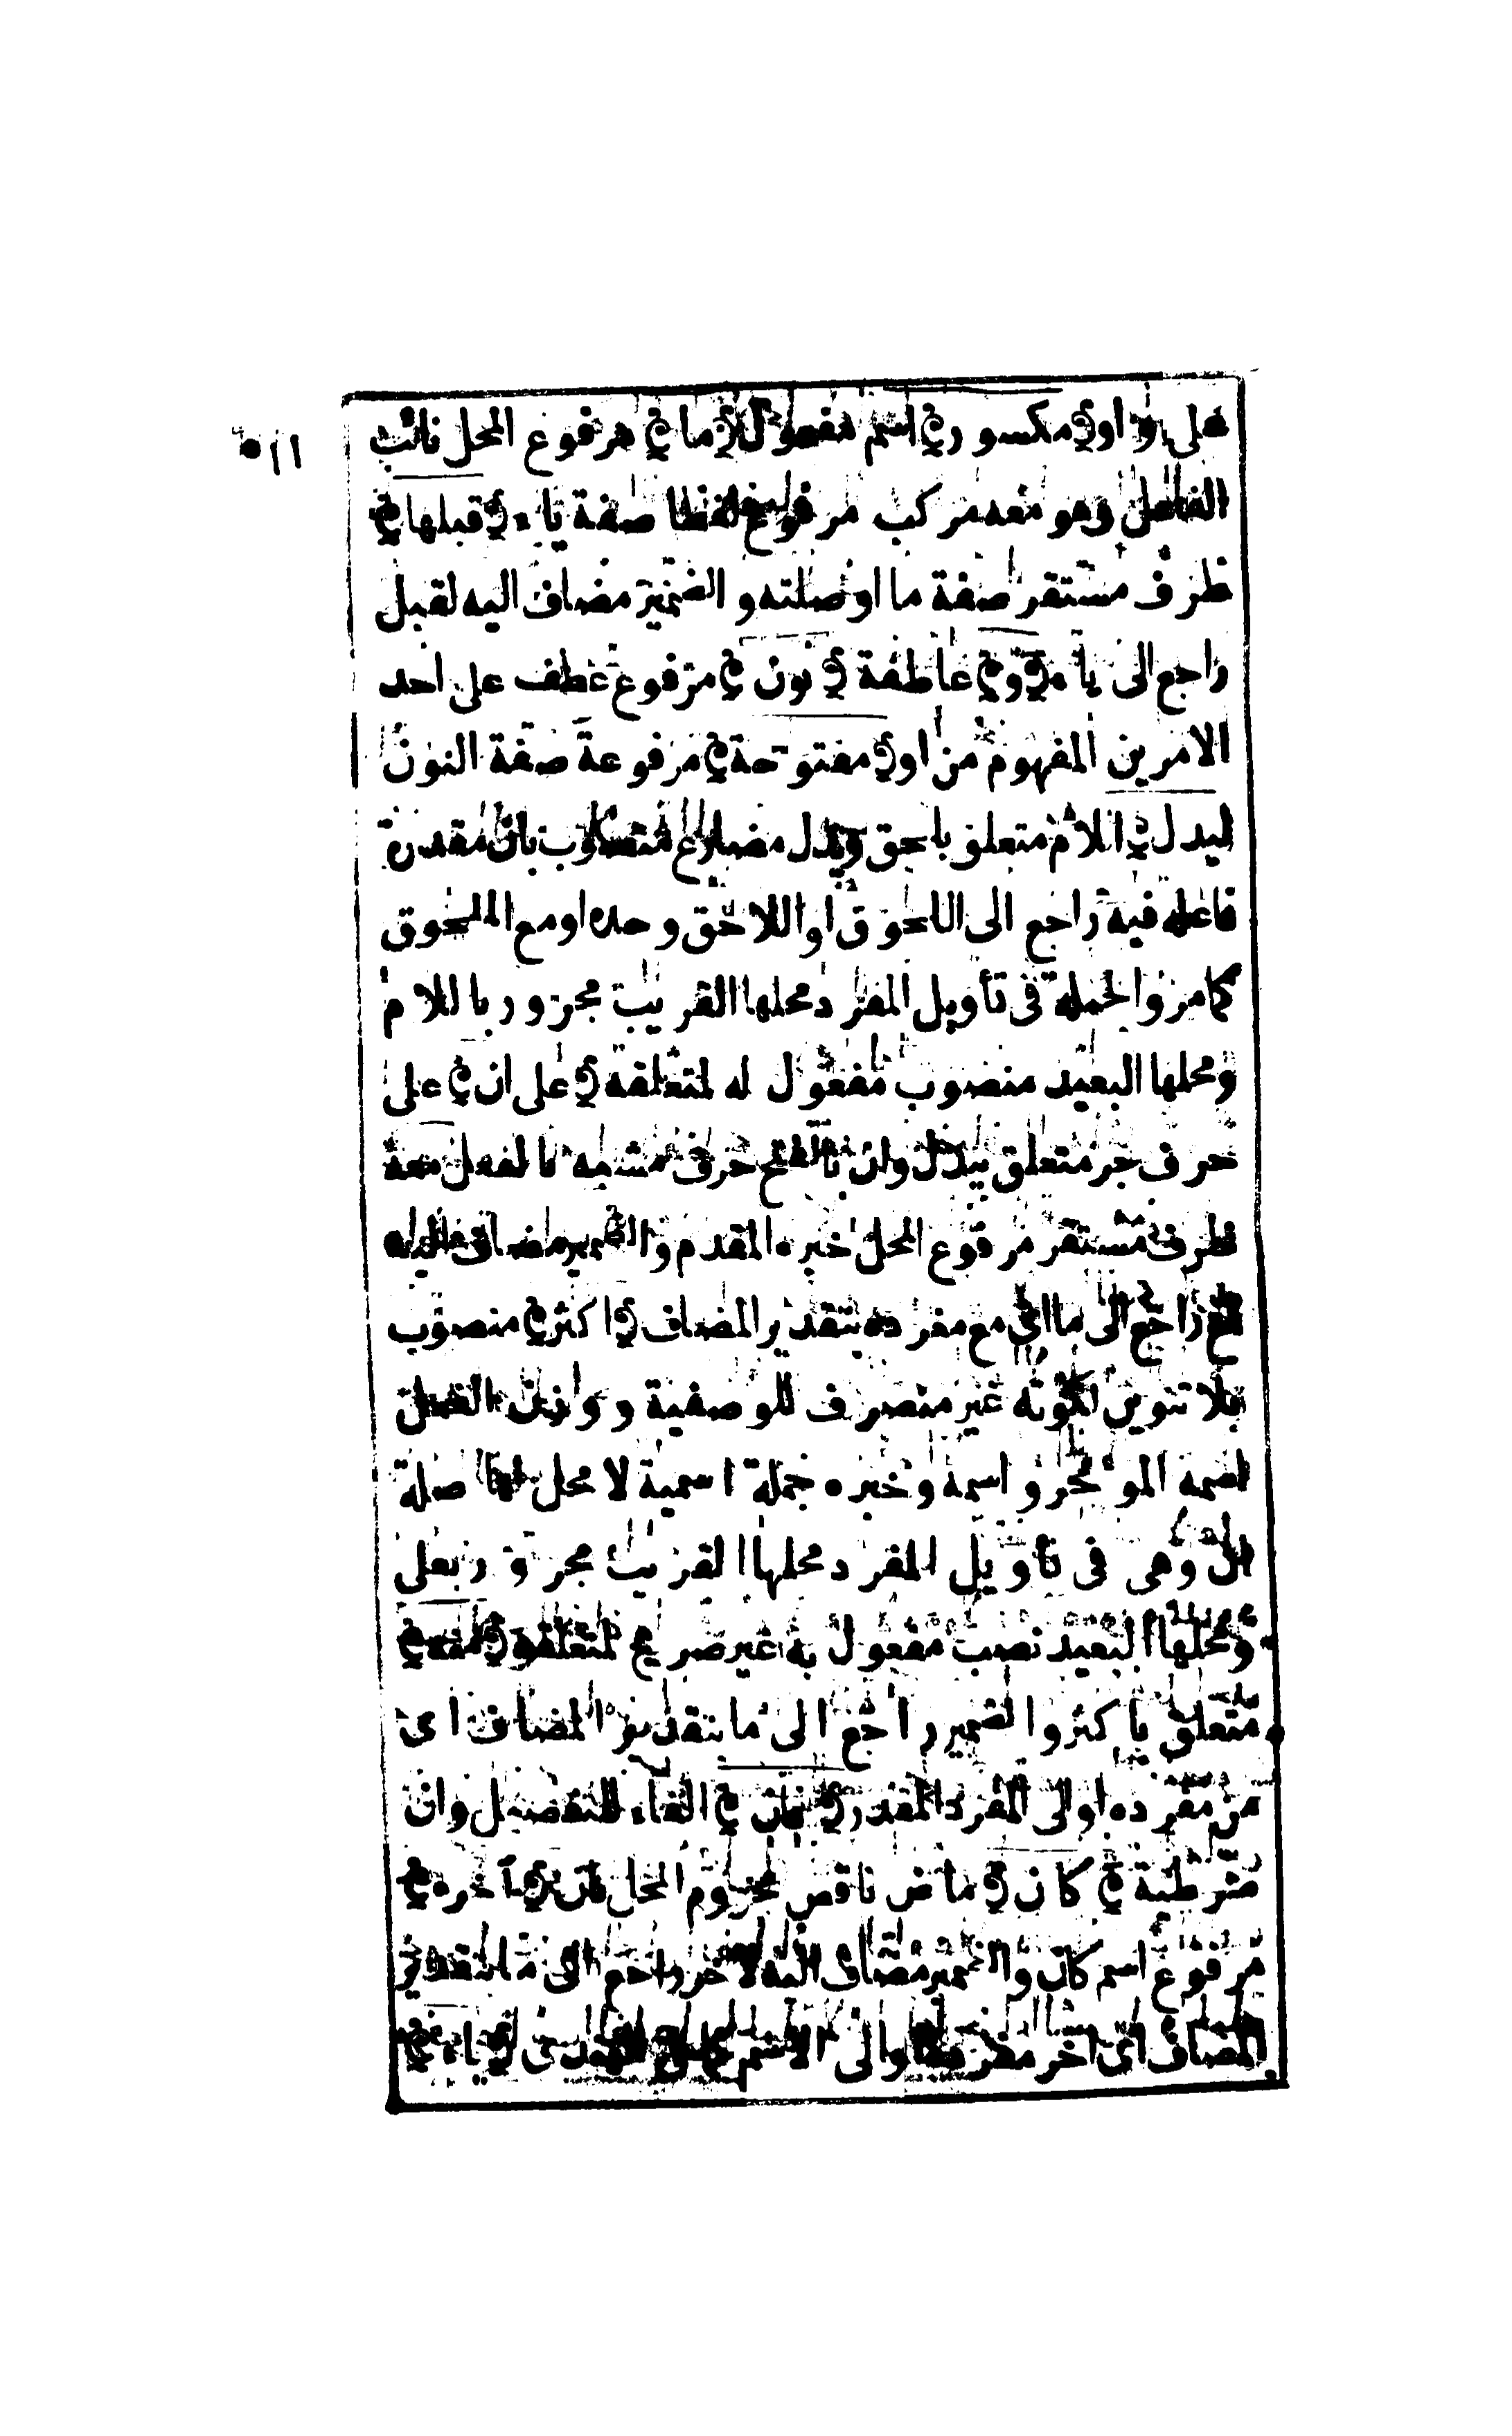 على واو (مكسور) اسم مفعول (ما) مرفوع المحل نائب
الفاعل وهو معه مركب مرفوع لفظا صفة ياء (قبلها)
ظرف مستقر صفة ما او صلته و الضمير مضاف اليه لقبل
راجع الى ياء (و) عاطفة (نون) مرفوع عطف على احد
الامرين المفهوم من او (مفتوحة) مرفوعة صفة النون
ليدل) اللام متعلق بالحق ويدل مضارع منصوب بان مقدرة
فاعله فيه راجع الى اللحوق او اللاحق وحده او مع الملحوق
كما مر والجملة فى تأويل المفرد محلها القريب مجرور باللام
ومحلها البعيد منصوب مفعول له لمتعلقه (على ان) على
حرف جر متعلق بيدل وان بالفتح حرف مشبه بالفعل (معه
ظرف مستقر مرفوع المحل خبره المقدم والضمير مضاف اليه
مع راجع الى ما اى مع مفرده بتقدير المضاف (اكثر) منصوب
بلا تنوين لكونه غير منصرف للوصفية ووزن الفعل
اسمه المؤخر واسمه وخبره جملة اسمية لا محل لها صلة
ان وهى فى تأويل المفرد محلها القريب مجرور بعلى
ومحلها البعيد نصب مفعول به غير صريح لمتعلقه (منه)
متعلق باكثر والضمير راجع الى ما بتقدير المضاف اى
من مفرده او الى المفرد المقدر (فان) الفاء للتفصيل وان
شرطية (كان) ماض ناقص مجزوم المحل بان (آخره)
مرفوع اسم كان والضمير مضاف اليه لآخر راجع الى ما بتقدير
المضاف اى آخر مفرده او الى الاسم (ياء)
٥١١